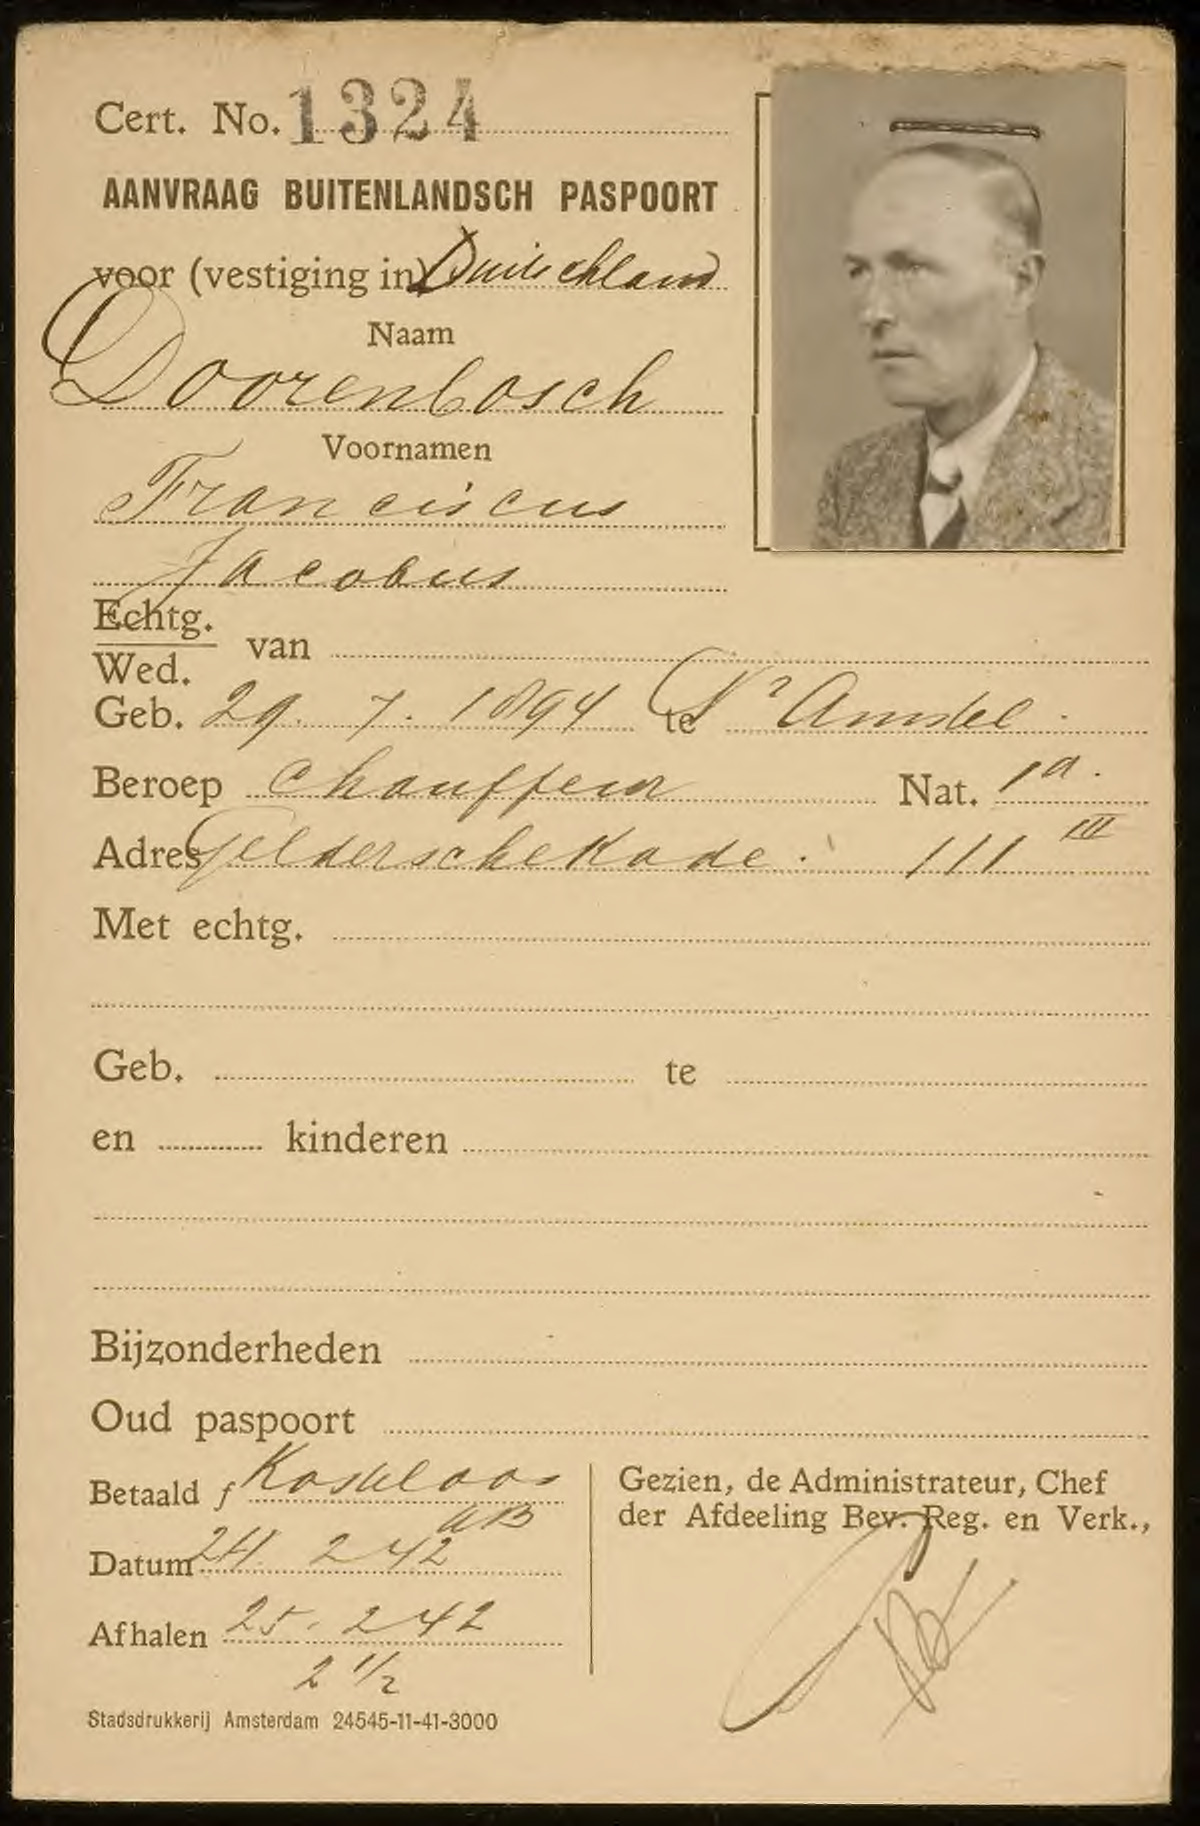 Cert. No. 1324
AANVRAAG BUITENLANDSCH PASPOORT
voor (vestiging in) Duitschland
Naam
Doorenbosch
Voornamen
Franciscus
Jacobus
Echtg.
Wed. van
Geb. 29. 7. 1894 te Nr Amstel.
Beroep chauffeur Nat. 1a.
Adres Gelderschekade. 111 III
Met echtg.
Geb. te
en kinderen
Bijzonderheden
Oud paspoort
Betaald f Kosteloos
AB
Datum 24. 2 42
Afhalen 25. 2 42
2 1/2
Gezien, de Administrateur, Chef
der Afdeeling Bev. Reg. en Verk.,
Stadsdrukkerij Amsterdam 24545-11-41-3000